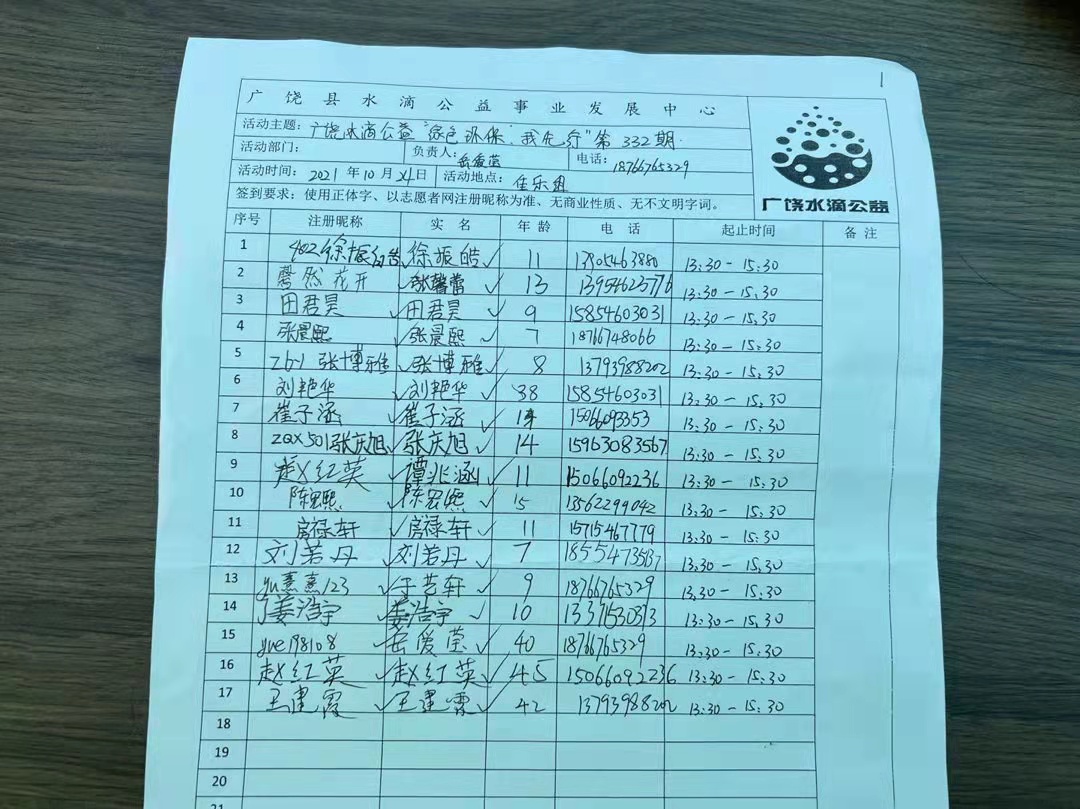 广饶县水滴公益事业发展中心
活动主题：广饶水滴公益"绿色环保，我先行"第332期
活动部门： 负责人：岳爱莹 电话：18766765329
活动时间：2021年10月24日 活动地点：佳乐组
签到要求：使用正体字、以志愿者网注册昵称为准、无商业性质、无不文明字词。
广饶水滴公益
序号 注册昵称 实 名 年 龄 电 话 起止时间 备 注
1 402徐振皓 徐振皓 11 13:30-15:30
2 张馨蕾 13 13:30-15:30
3 田君昊 田君昊 9 15854603031 13:30-15:30
4 张晨熙 张晨熙 7 18766748066 13:30-15:30
5 zb-1张博雅 张博雅 8 13793988202 13:30-15:30
6 刘艳华 刘艳华 38 15854603031 13:30-15:30
7 崔子涵 崔子涵 15066093353 13:30-15:30
8 ZQX501张庆旭 张庆旭 14 15963083567 13:30-15:30
9 赵红英 谭兆涵 11 15066092236 13:30-15:30
10 陈宏熙 陈宏熙 13562299042 13:30-15:30
11 房禄轩 房禄轩 11 15715467779 13:30-15:30
12 刘若丹 刘若丹 7 13:30-15:30
13 yu熹熹123 于艺轩 9 18766765329 13:30-15:30
14 姜浩宇 姜浩宇 10 13:30-15:30
15 yue198108 岳爱莹 40 18766765329 13:30-15:30
16 赵红英 赵红英 45 15066092236 13:30-15:30
17 王建霞 王建霞 42 13793988202 13:30-15:30
18
19
20
21